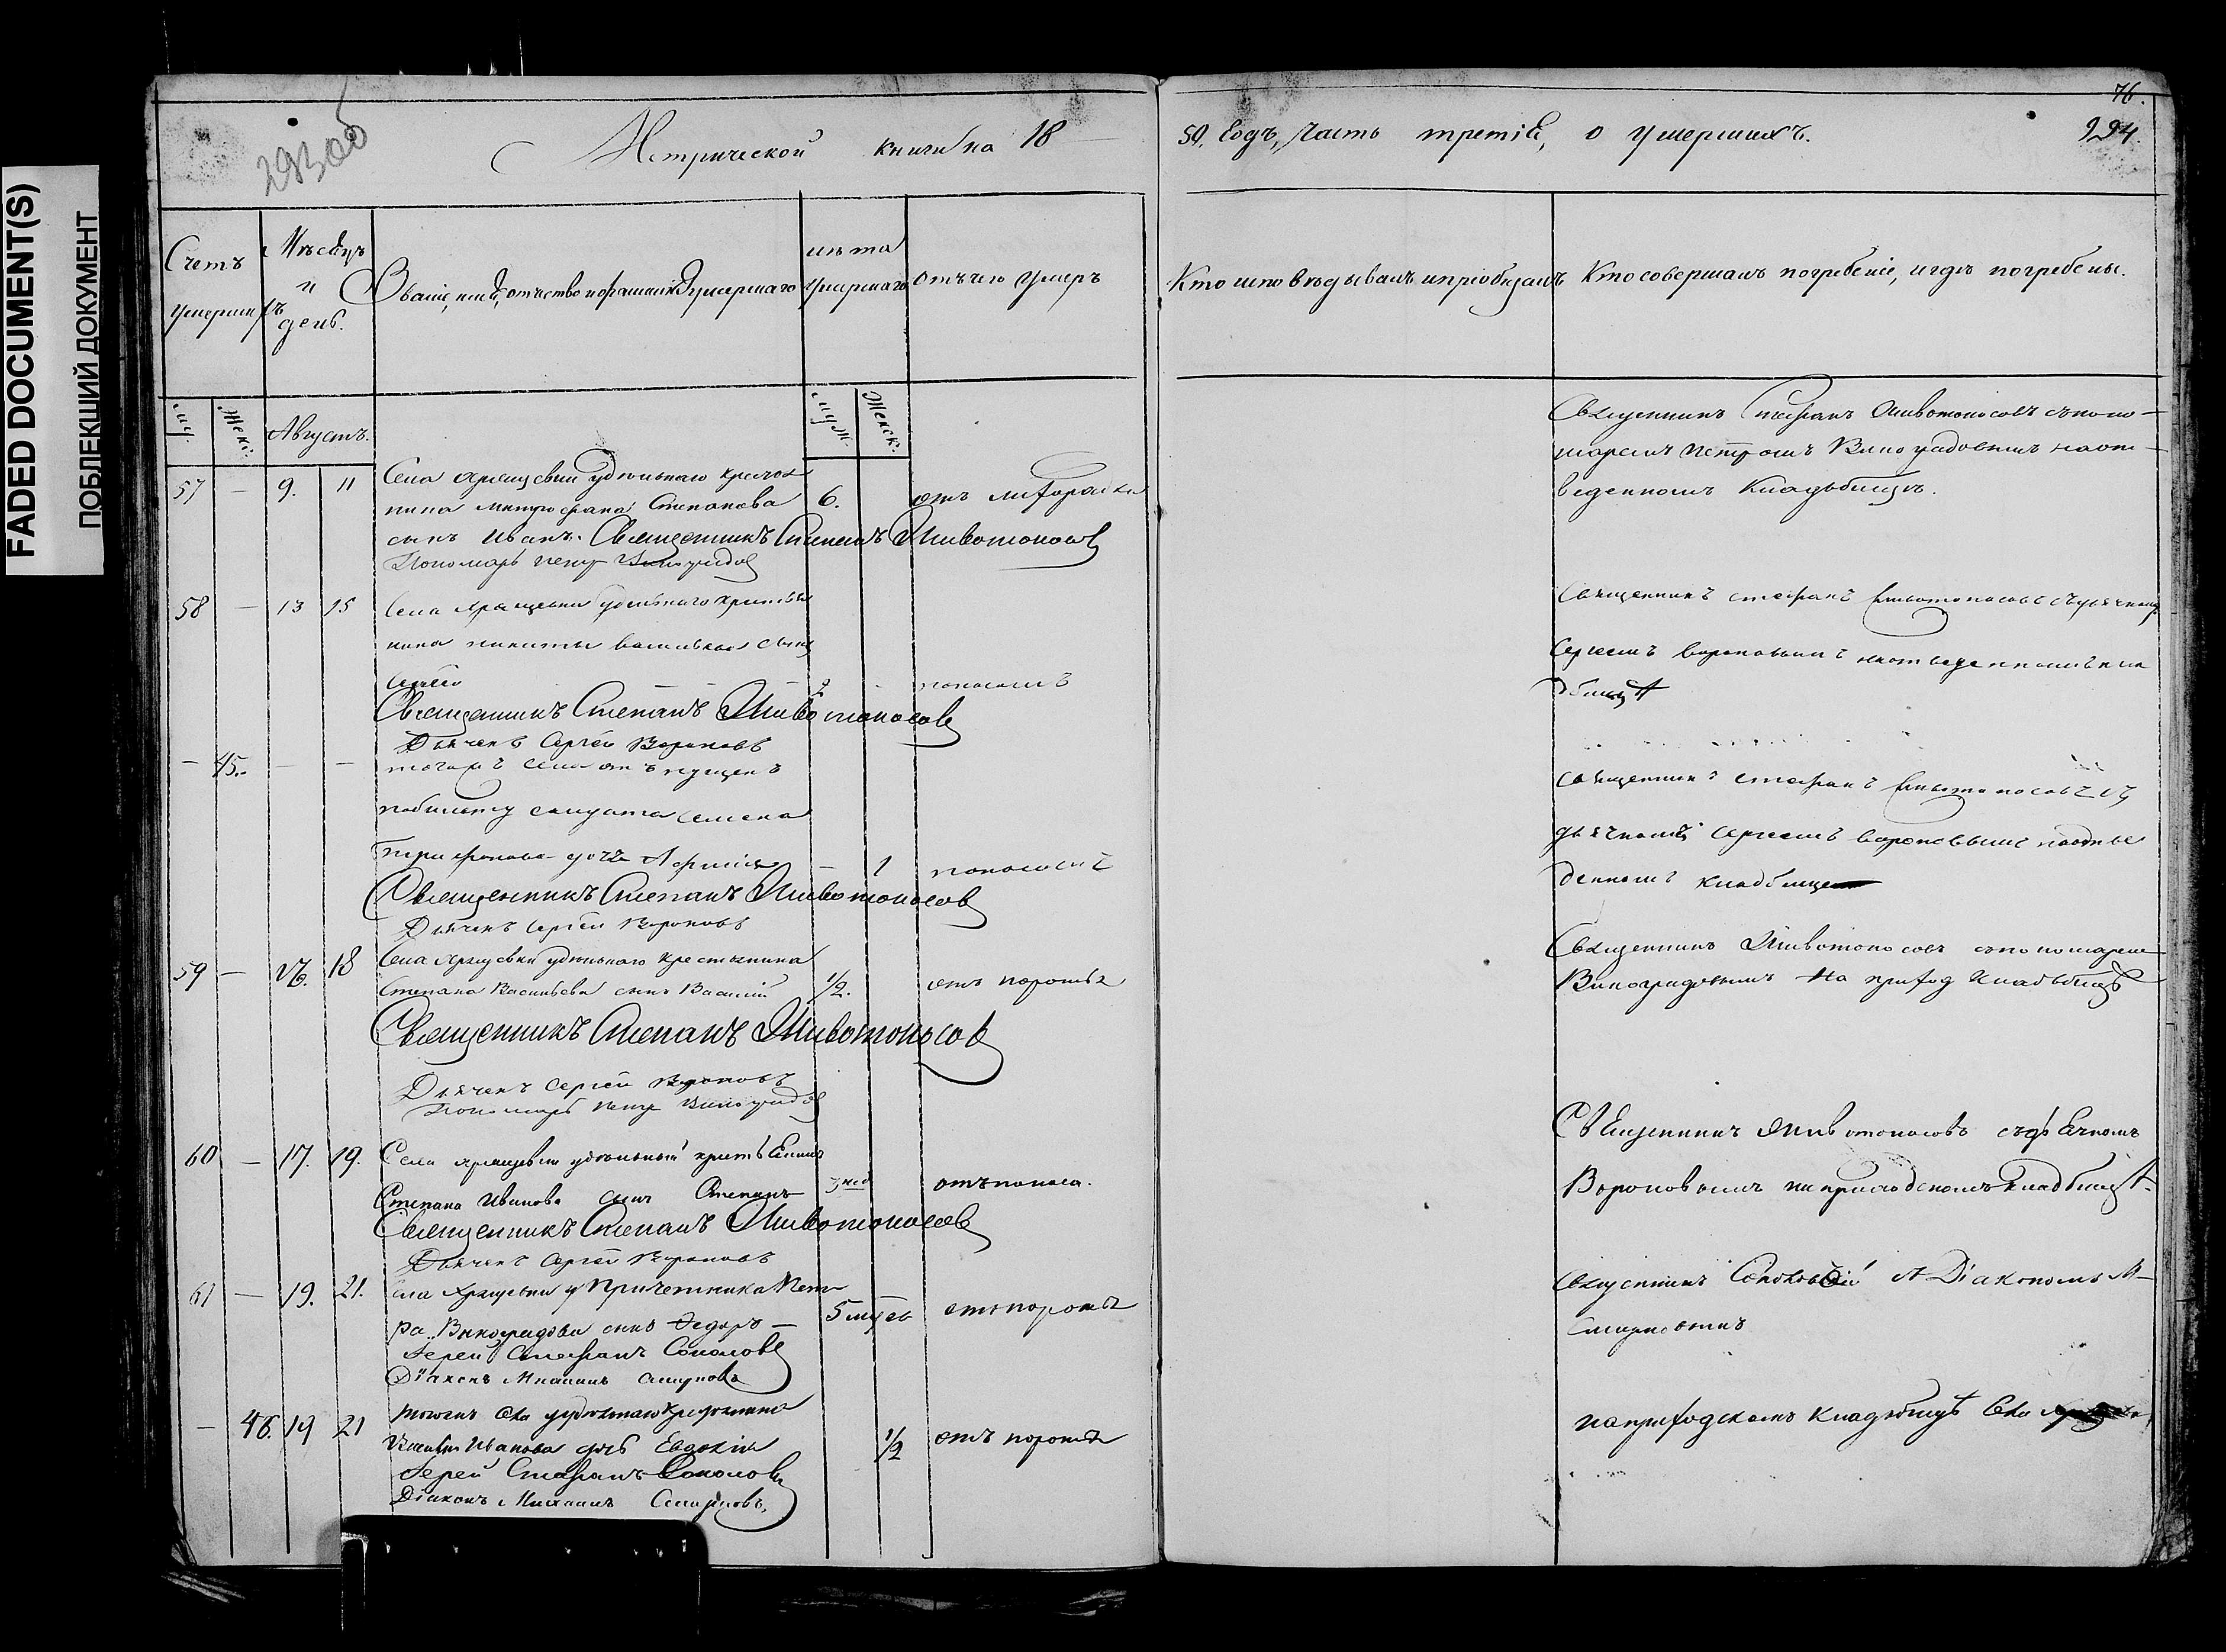 FADED DOCUMENT(S)
ПОБЛЕКШИЙ ДОКУМЕНТ
293об
Метрической книги на 18
Счетъ умершихъ
Мѣсяцъ и день.
Званіе, имя, отчество и фамилія умершаго
лѣта умершаго
Отъ чего умеръ
Муж.
Женс:
Августъ.
Муж.
Женск:
57 — 9. 11
Села удѣльнаго крестья
нина Митрофана Степанова 6. отъ
сынъ Иванъ. Священникъ Степанъ Животоносовъ
Пономарь Петръ Виноградовъ
58 — 13 15
Села удѣльнаго крестья
нина Никиты Васильева сынъ
Сергей 2 - поносомъ
Священникъ Степанъ Животоносовъ
Дьячекъ Сергей Вороновъ
— 45. — —
тогожъ села отпущенъ
по билету солдата Семена
дочь — 1 поносомъ
Священникъ Степанъ Животоносовъ
Дьячекъ Сергей Вороновъ
59 — 16. 18
Села удѣльнаго крестьянина
Степана Васильева сынъ Василий 1/2. отъ
Священникъ Степанъ Животоносовъ
Дьячекъ Сергей Вороновъ
Пономарь Петръ Виноградовъ
60 — 17. 19.
Села удѣльный
Степана Иванова сынъ Степанъ 3 нед отъ поноса.
Священникъ Степанъ Животоносовъ
Дьячекъ Сергей Вороновъ
61 — 19. 21.
Села Причетника Пет
ра Виноградова сынъ Федоръ — 5 отъ
Иерей Стефанъ Соколовъ
Діаконъ Михаилъ Смирновъ
— 46. 19 21
тогожъ села удѣльнаго крестьянина
Иванова дочь Евдокія 1/2 отъ
Иерей Стефанъ Соколовъ
Діаконъ Михаилъ Смирновъ.
76.
59. годъ, часть третія, о умершихъ.
294
Кто исповѣдывалъ и приобщалъ
Кто совершалъ погребеніе, и гдѣ погребены.
Священникъ Стефанъ Животоносовъ съ поно—
маремъ Петромъ Виноградовымъ на от—
веденномъ кладбищѣ.
Священникъ Стефанъ Животоносовъ съ дьячкомъ
Сергеемъ Вороновымъ на отведенномъ кла
дбищѣ
Священникъ Стефанъ Животоносовъ съ
дьячкомъ Сергеемъ Вороновымъ на отве
денномъ кладбище
Священникъ Животоносовъ съ пономаремъ
Виноградовымъ на приход кладбищѣ
Священникъ Животоносовъ съ дьячкомъ
Вороновымъ на приходскомъ кладбищѣ.
Священникъ Діакономъ М—
Смирновымъ
на приходскомъ кладбищѣ села